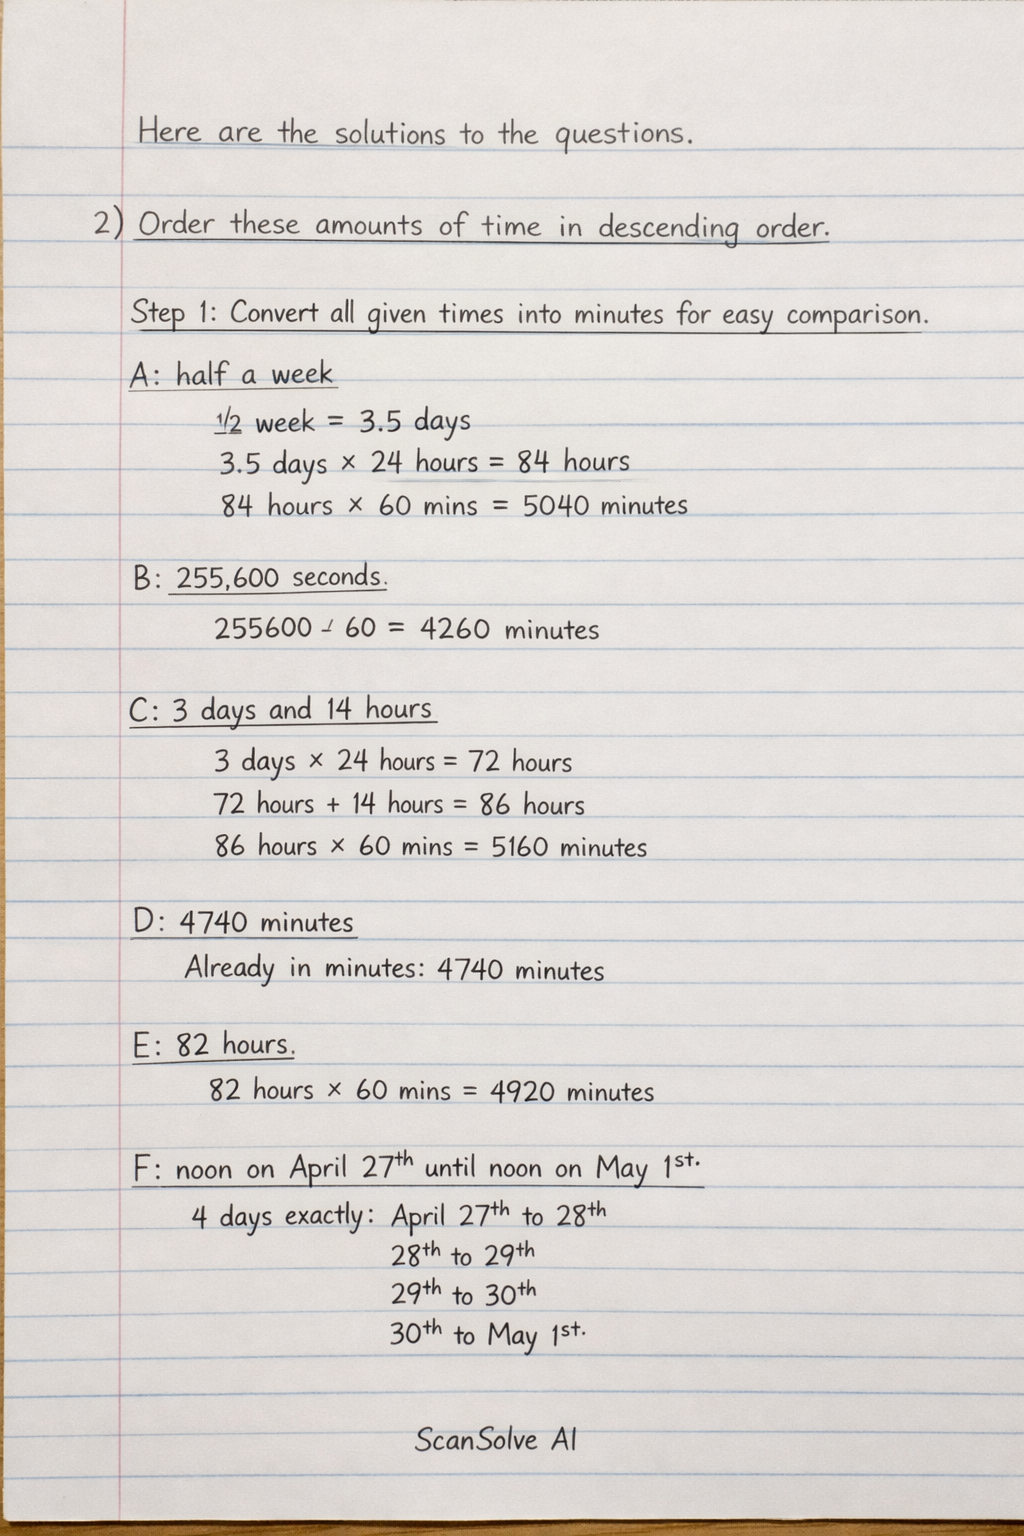 Here are the solutions to the questions.
2) Order these amounts of time in descending order.
Step 1: Convert all given times into minutes for easy comparison.
A: half a week
1/2 week = 3.5 days
3.5 days × 24 hours = 84 hours
84 hours × 60 mins = 5040 minutes
B: 255,600 seconds.
255600 / 60 = 4260 minutes
C: 3 days and 14 hours
3 days × 24 hours = 72 hours
72 hours + 14 hours = 86 hours
86 hours × 60 mins = 5160 minutes
D: 4740 minutes
Already in minutes: 4740 minutes
E: 82 hours.
82 hours × 60 mins = 4920 minutes
F: noon on April 27th until noon on May 1st.
4 days exactly: April 27th to 28th
28th to 29th
29th to 30th
30th to May 1st.
ScanSolve AI